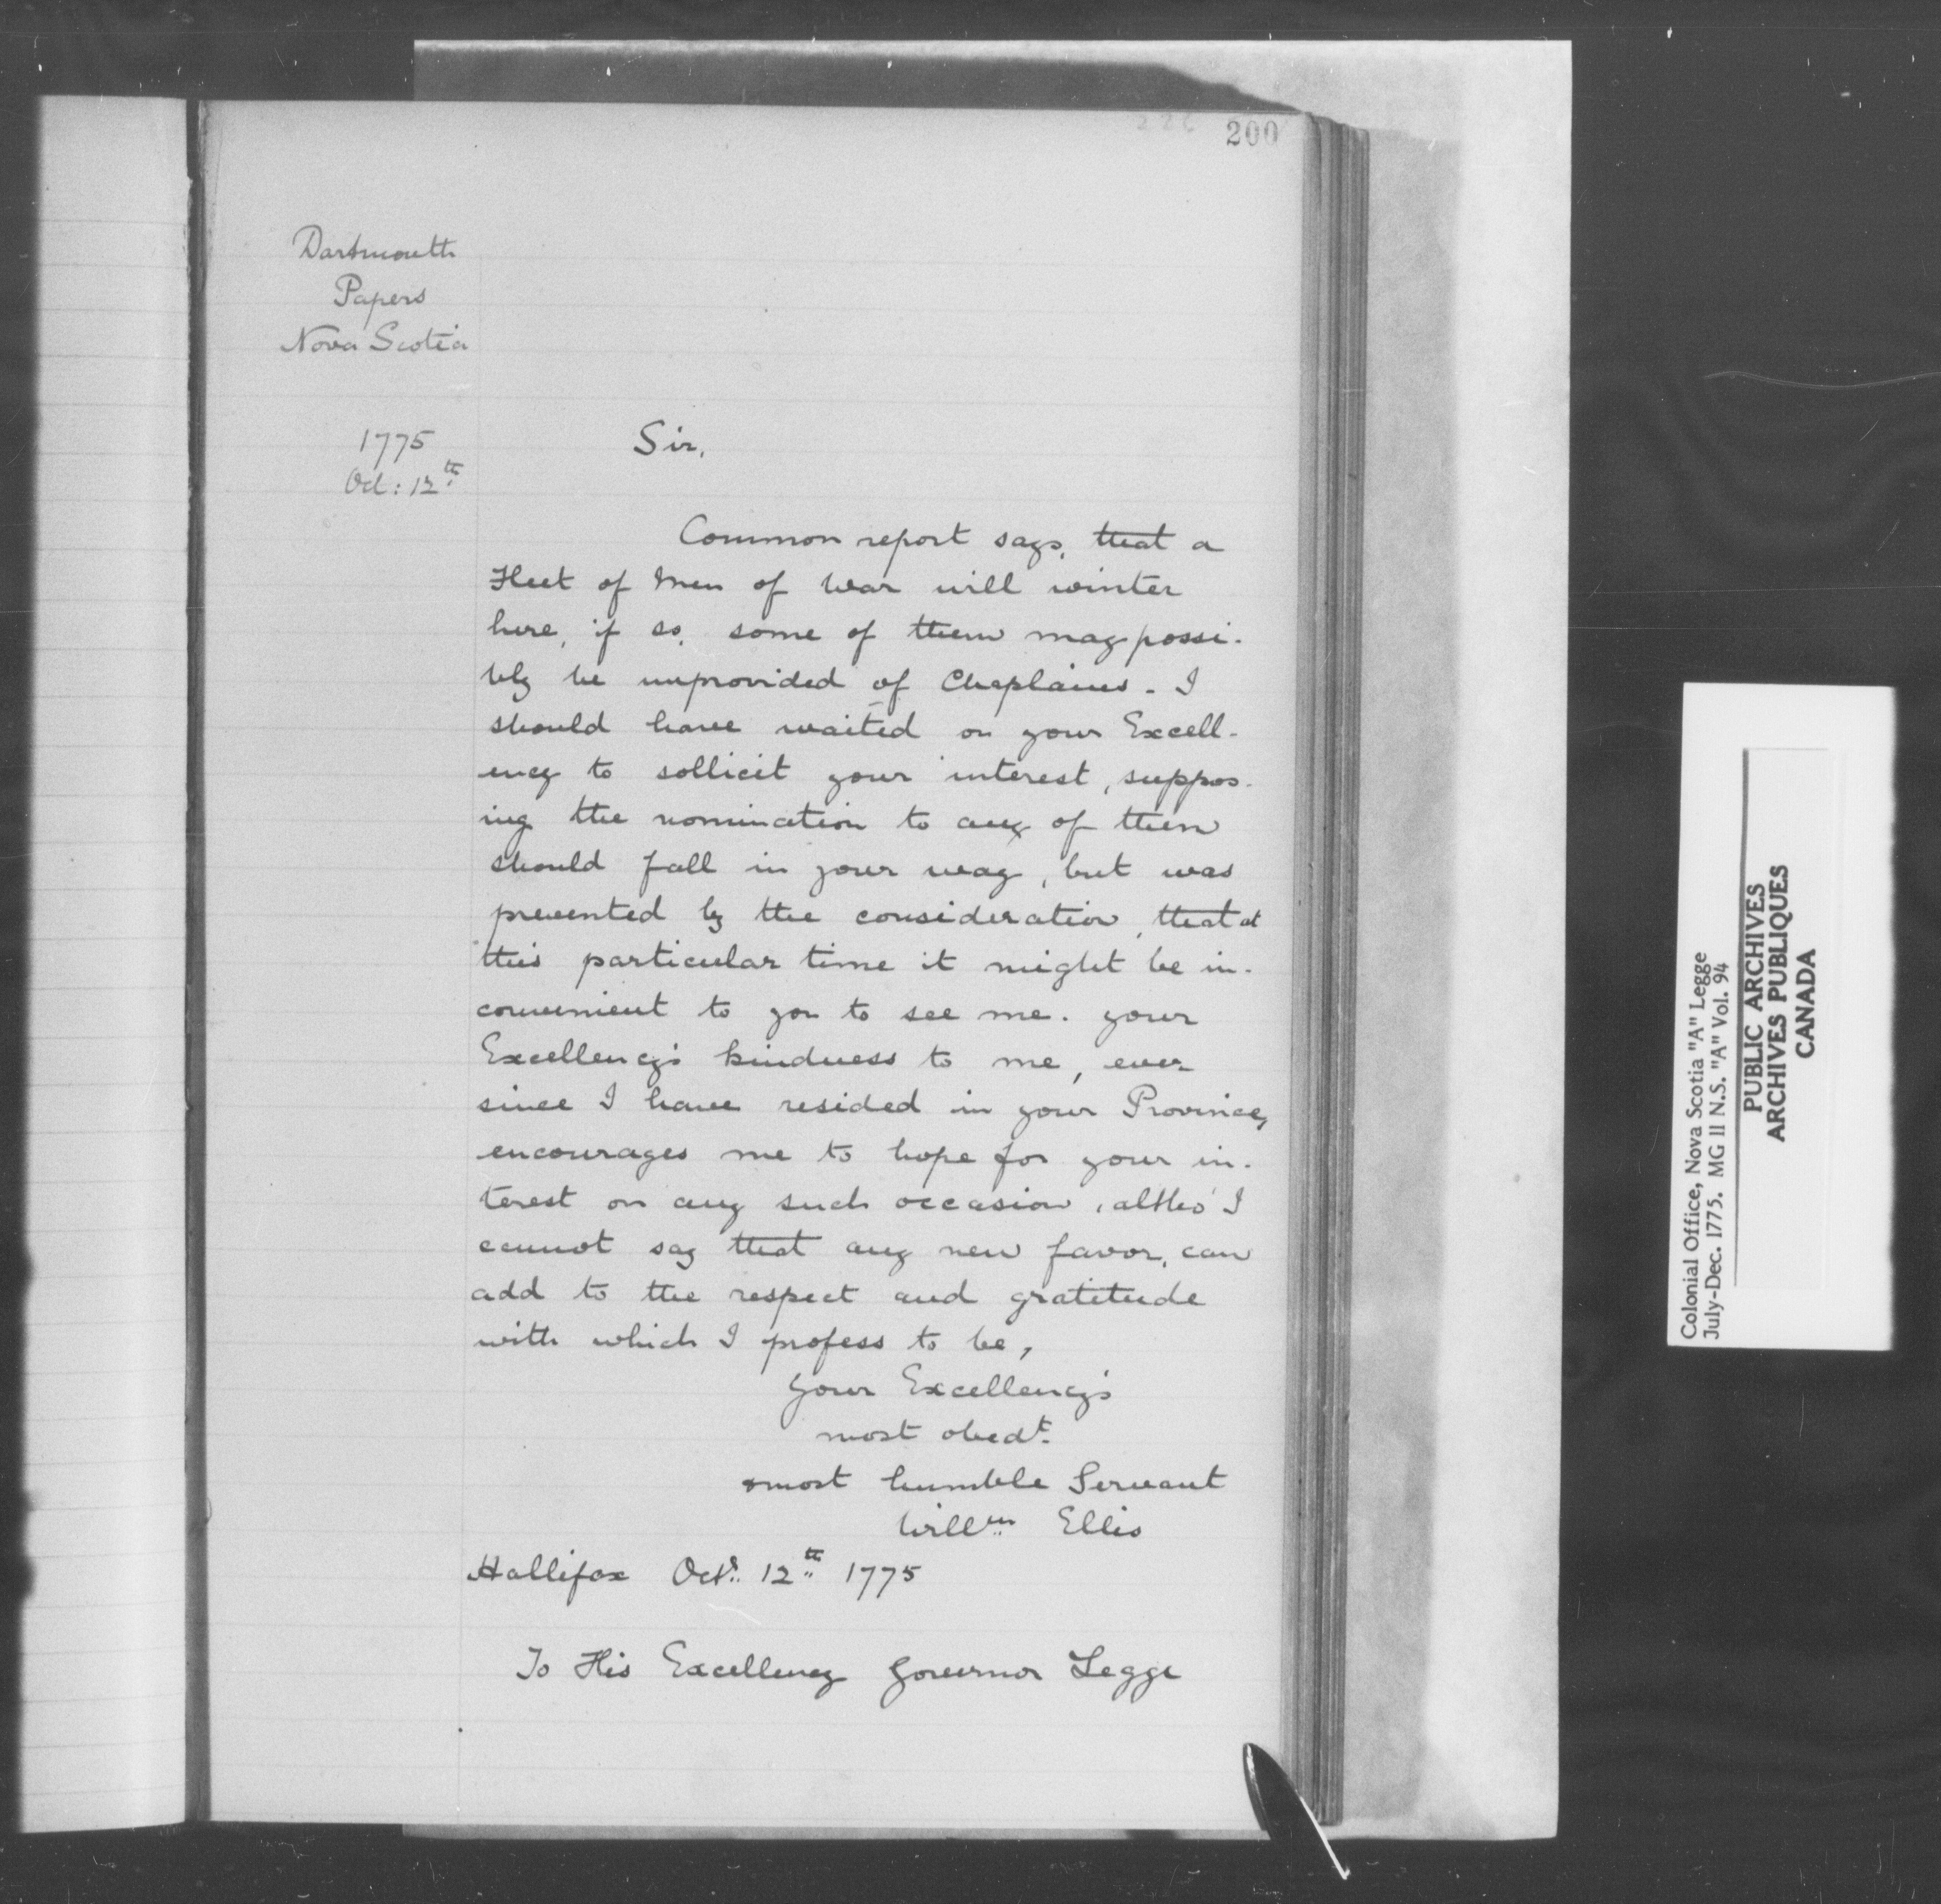 226 200
Dartmouth
Papers
Nova Scotia
1775
Oct: 12th
Sir,
Common report says, that a
Fleet of Men of War will winter
here, if so, some of them may possi-
bly be unprovided of Chaplains. I
should have waited on your Excell-
ency to sollicit your interest, suppos-
ing the nomination to any of them
should fall in your way, but was
prevented by the consideration, that at
this particular time it might be in-
convenient to you to see me. your
Excellency's kindness to me, ever
since I have resided in your Province,
encourages me to hope for your in-
terest on any such occasion, altho' I
cannot say that any new favor, can
add to the respect and gratitude
with which I profess to be,
Your Excellency's
most obedt
& most humble Servant
Willm Ellis
Hallifax Octr 12th 1775
To His Excellency Governor Legge
Colonial Office, Nova Scotia "A" Legge
July-Dec. 1775. MG 11 N.S. "A" Vol. 94
PUBLIC ARCHIVES
ARCHIVES PUBLIQUES
CANADA